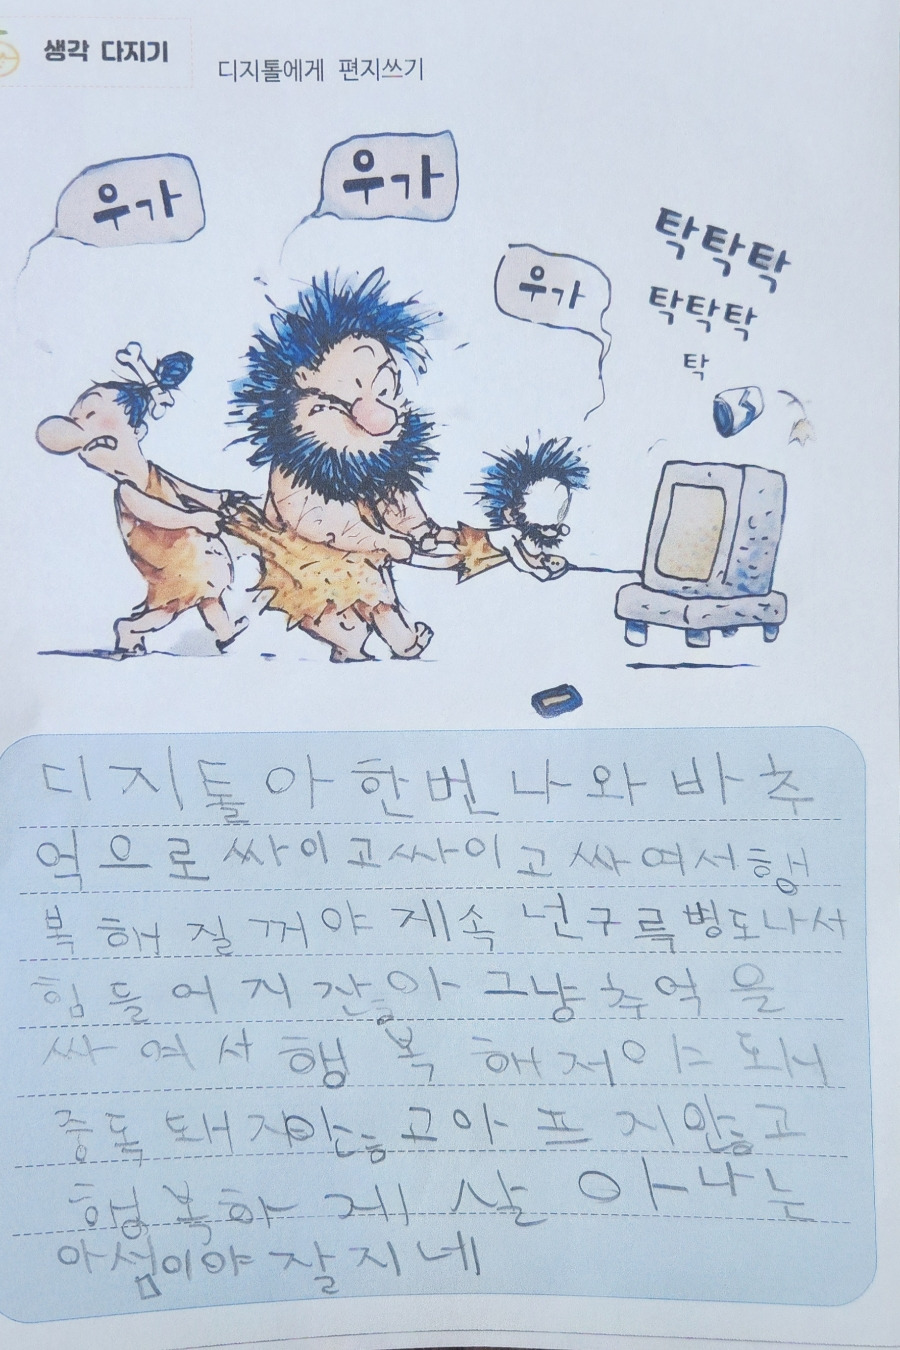 생각 다지기
디지톨에게 편지쓰기
우가
우가
우가
탁탁탁
탁탁탁
탁
디지돌아 한번 나와 바 추
억으로 싸이고싸이고 싸여서행
복해질꺼야 계속 넌구륵병도나서
힘들어지잖아 그냥 추억을
싸여서 행복해저야
중독돼지안고아프지안고
행복하게살아나는
아섬이야 잘지네